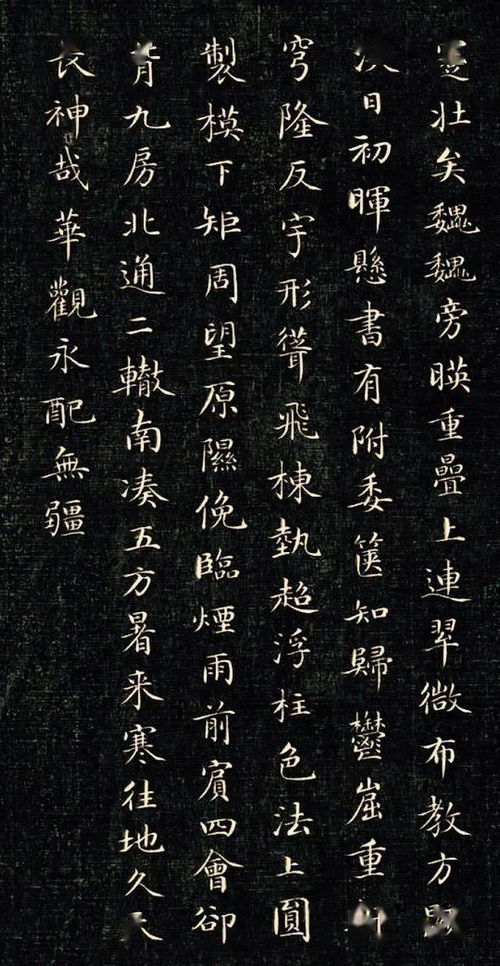 壯矣魏魏旁暎重疊上連翠微布教方
日初暉懸書有附委篋知歸鬱崛重
穹隆反宇形聳飛棟埶超浮柱色法上圓
製模下矩周望原隰俛臨煙雨前賓四會卻
背九房北通二轍南湊五方暑来寒往地久天
長神哉華觀永配無疆